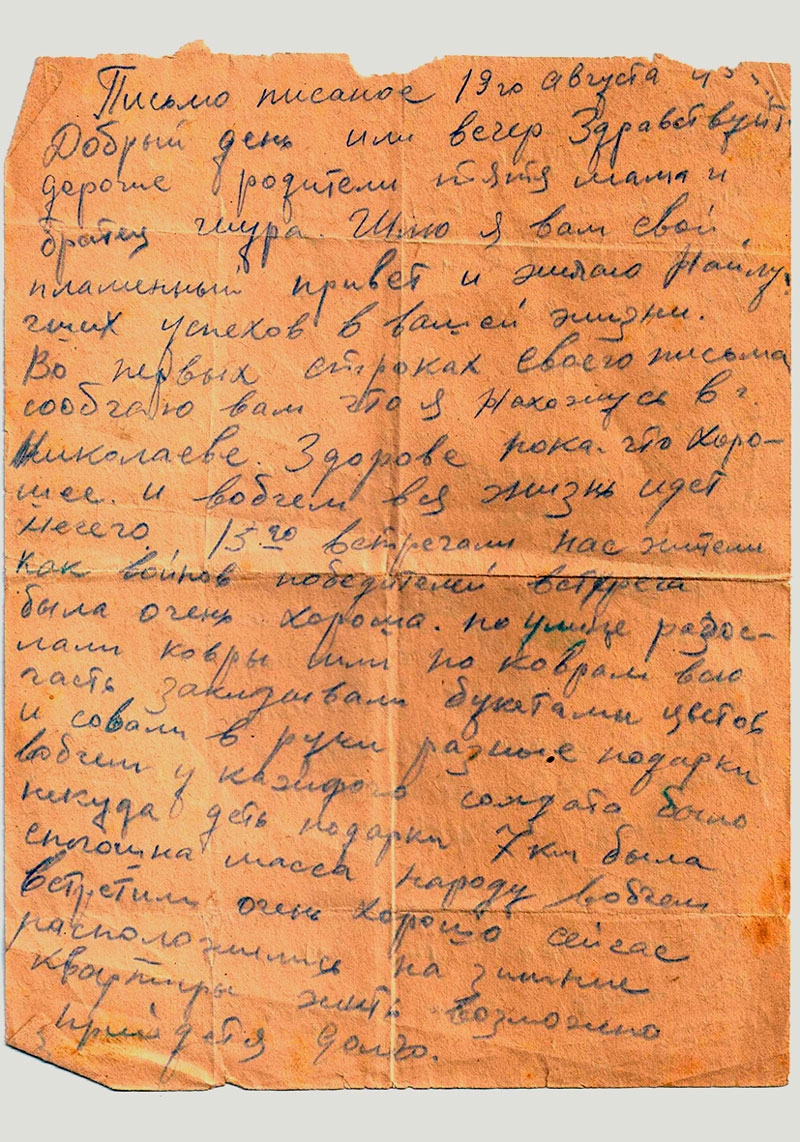 Письмо писаное 19го августа
Добрый день или вечер Здравствуйт
дорогие родители тятя мама и
братец шура. Шлю я вам свой
пламенный привет и желаю Найлу-
чших успехов в вашей жизни.
Во первых строках своего письма
сообчаю вам что я нахожусь в г.
Николаеве. Здорове пока. что хоро-
шее. и вобчем вся жизнь идет
Нечего, 13го встречали нас жители
как войнов победителей встреча
была очень хороша. по улице разос-
лали ковры шли по коврам всю
часть закидывали букетами цветов
и совали в руки разные подарки
вобчем у каждого солдата было
некуда деть подарки 7км была
сплошна масса народу вобчем
встретили очень хорошо сейчас
расположились на зимние
квартиры жить возможно
прийдетя долго.